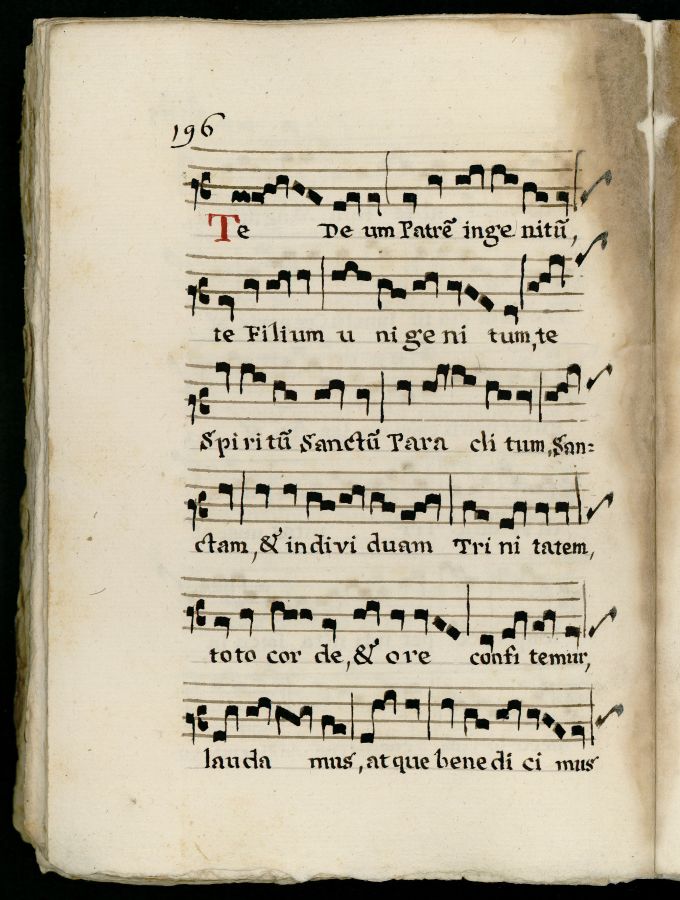 196
Te De um Patrẽ inge nitũ,
te Filium u ni ge ni tum, te
Spiritũ Sanctũ Para cli tum, San=
ctam, & indivi duam Tri ni tatem,
toto cor de, & ore confi temur,
lauda mus, atque bene di ci mus